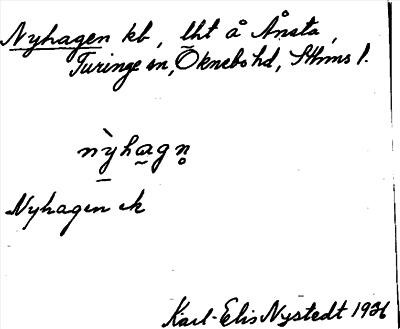 Nyhagen kb, lht å Ånsta,
Turinge sn, Öknebo hd, Sthms l.
nỳhagn̥
Nyhagen ek
Karl-Elis Nystedt 1936